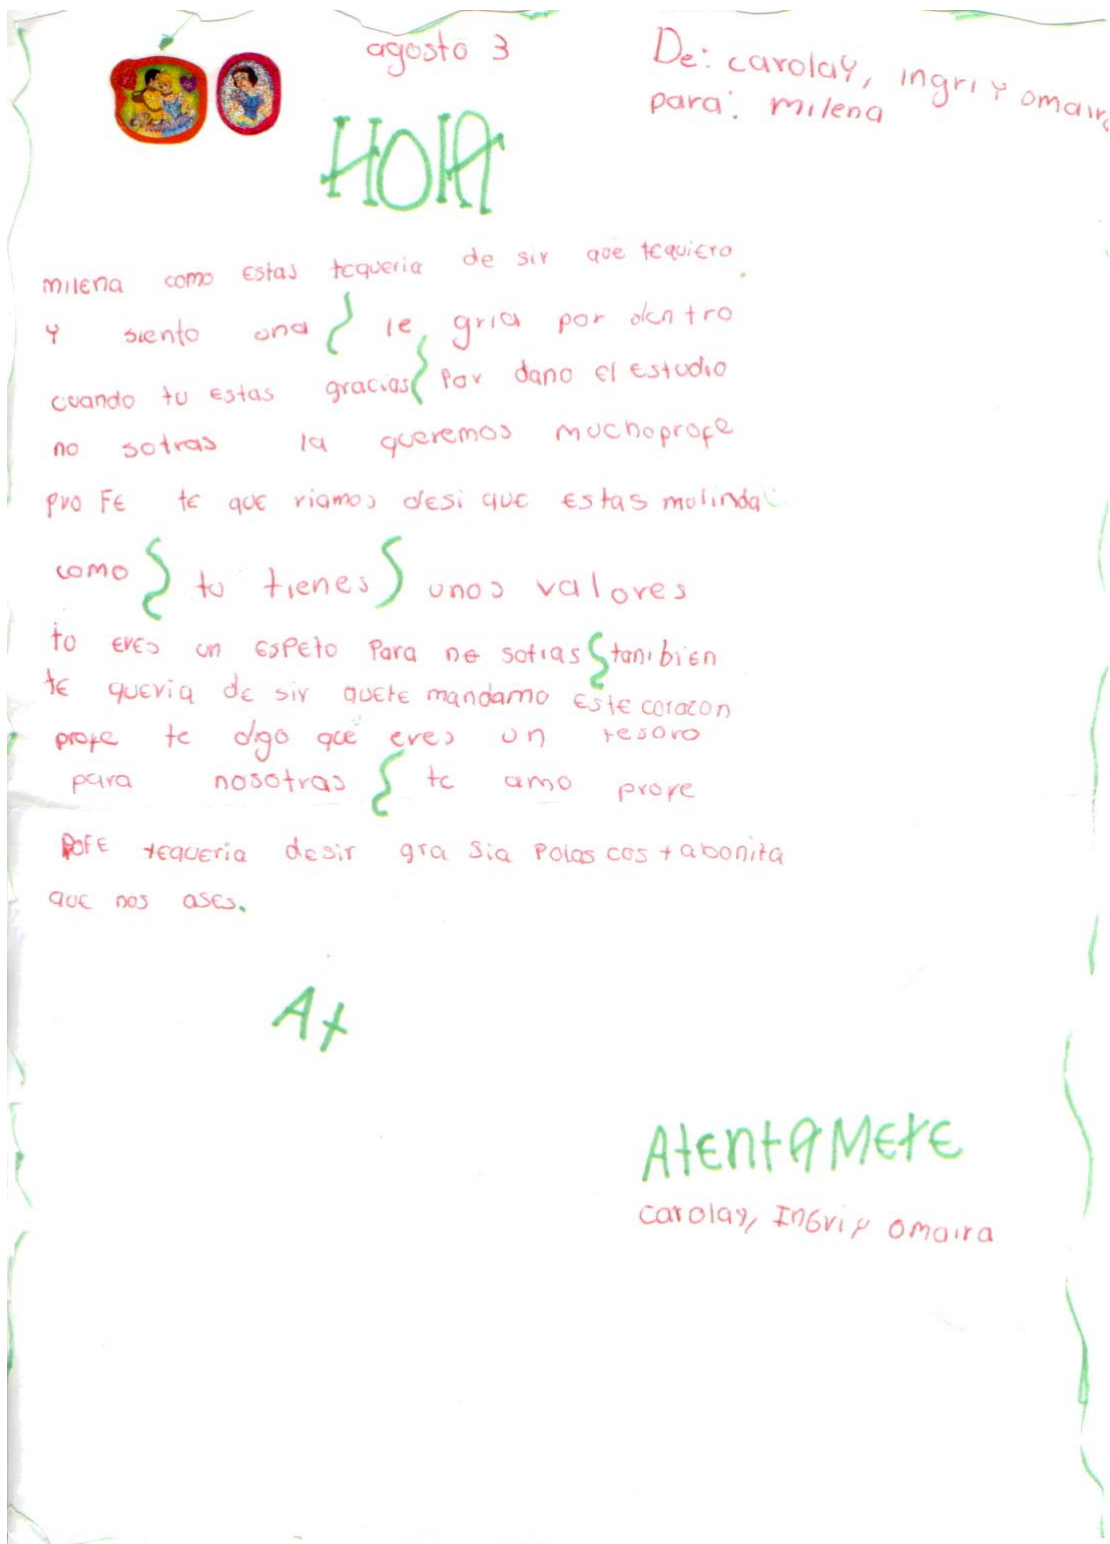 agosto 3
De: carolay, ingri y omaira
para: milena
HOlA
milena como estas tequeria de sir que tequiero
y siento una le gria por dentro
cuando tu estas gracias por dano el estudio
no sotras la queremos muchoprofe
pro Fe te que riamos desi que estas molinda
como tu tienes unos valores
tu eres un espeto para no sotras tanibien
te queria de sir quete mandamo este corazon
profe te digo que eres un tesoro
para nosotras te amo profe
PoFE tequeria desir gra sia polas cos tabonita
que nos ases.
At
AtentaMete
carolay, InGri y omaira